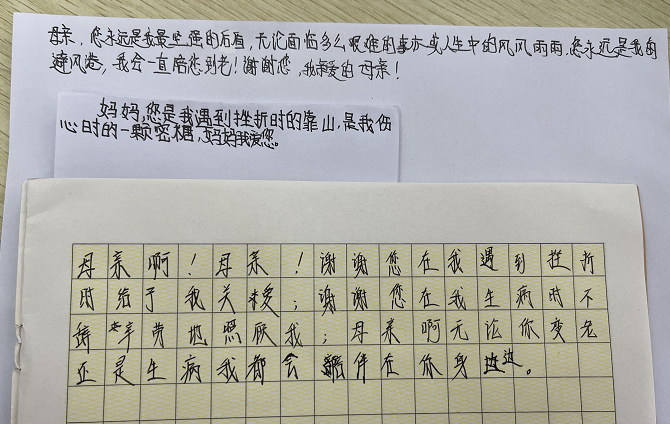 母亲，您永远是我最坚强的后盾，无论面临多么艰难的事亦或人生中的风风雨雨，您永远是我的
避风港，我会一直陪您到老！谢谢您，我亲爱的母亲！
妈妈，您是我遇到挫折时的靠山，是我伤
心时的一颗密糖，妈妈我爱您。
母亲啊！母亲！谢谢您在我遇到挫折
时给予我关爱；谢谢您在我生病时不
辞辛劳地照顾我；母亲啊无论你变老
还是生病我都会陪伴在你身边。